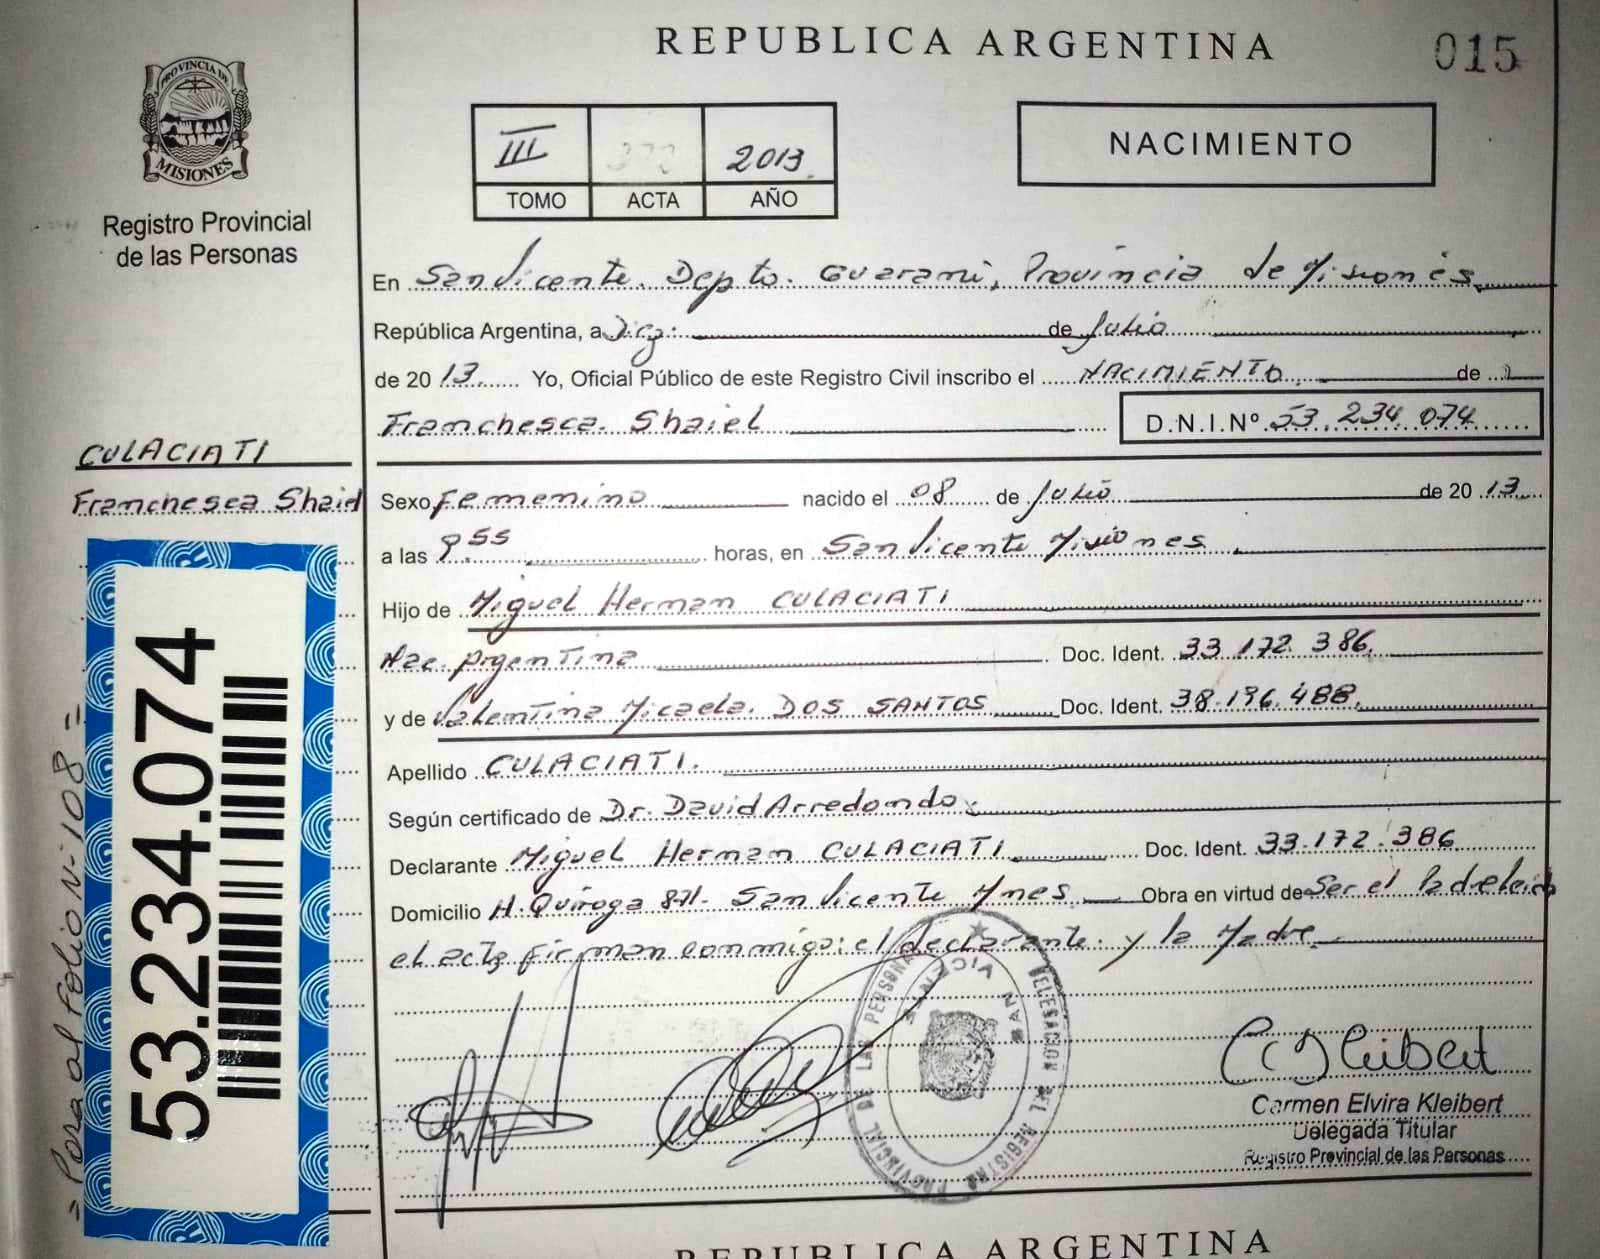 REPUBLICA ARGENTINA
015
PROVINCIA DE
MISIONES
Registro Provincial
de las Personas
III 2013
TOMO ACTA AÑO
NACIMIENTO
En San Vicente. Depto. Guaraní, Provincia de Misiones
República Argentina, a Diez: de Julio
de 20 13 Yo, Oficial Público de este Registro Civil inscribo el NACIMIENTO de
Franchesca Shaiel D.N.I.Nº 53.234.074
CULACIATI
Franchesca Shaiel
Sexo Femenino nacido el 08 de Julio de 20 13
a las 9.55 horas, en San Vicente Misiones
Hijo de Miguel Hernan CULACIATI
Nac. Argentina Doc. Ident. 33.172.386
y de Valentina Micaela DOS SANTOS Doc. Ident. 38.196.488
Apellido CULACIATI.
Según certificado de Dr. David Arredondo
Declarante Miguel Hernan CULACIATI Doc. Ident. 33.172.386
Domicilio H. Quiroga 871- San Vicente Mnes Obra en virtud de Ser el Padre
el acta firman conmigo: el declarante y la Madre
53.234.074
= Pasa al Folio Nº 108 =
DELEGACION DEL REGISTRO PROVINCIAL DE LAS PERSONAS
SAN VICENTE
Carmen Elvira Kleibert
Delegada Titular
Registro Provincial de las Personas
REPUBLICA ARGENTINA